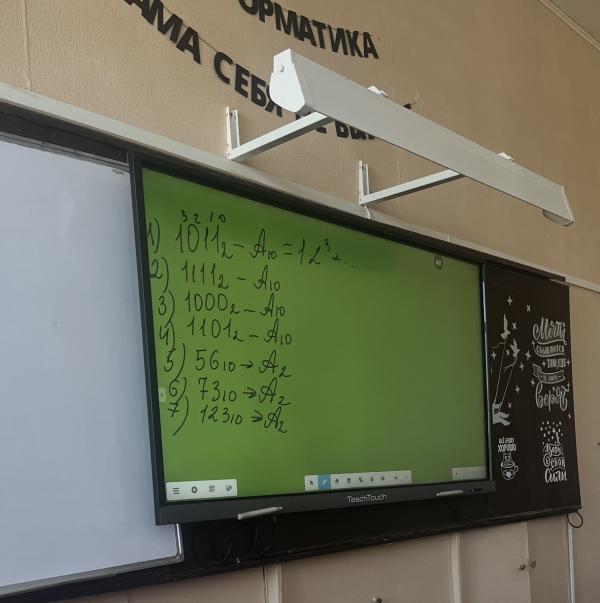 ОРМАТИКА
АМА СЕБЯ НЕ ВЫ
3 2 1 0
1) 1011₂ - A₁₀ = 1 2³ + ...
2) 1111₂ - A₁₀
3) 1000₂ - A₁₀
4) 1101₂ - A₁₀
5) 56₁₀ → A₂
6) 73₁₀ → A₂
7) 123₁₀ → A₂
TeachTouch
Мечты
сбываются
там, где
в них
верят
ВСЁ БУДЕТ
ХОРОШО
Верь
в свои
силы